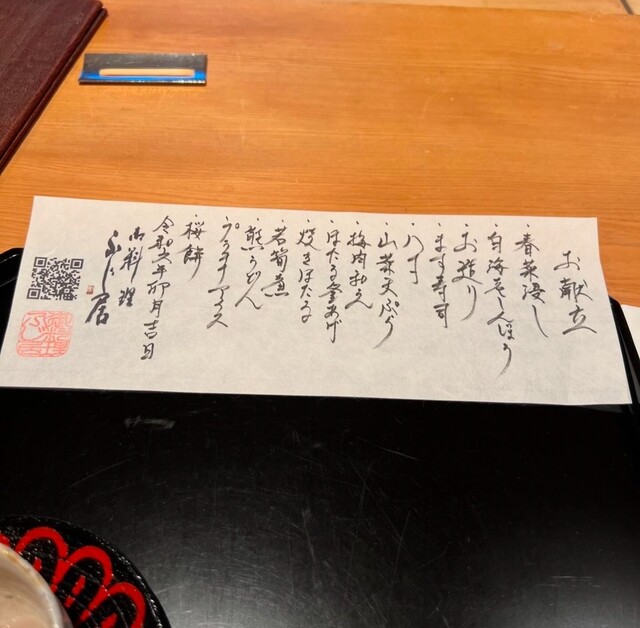 お献立
・春菜浸し
・白海老しんじょう
・お造り
・ます寿司
・八寸
・山菜天ぷら
・梅肉和え
・ほたる釜あげ
・焼きほたる
・若筍煮
・熊うどん
・アイス
・桜餅
令和六年卯月吉日
御料理
ふじ居